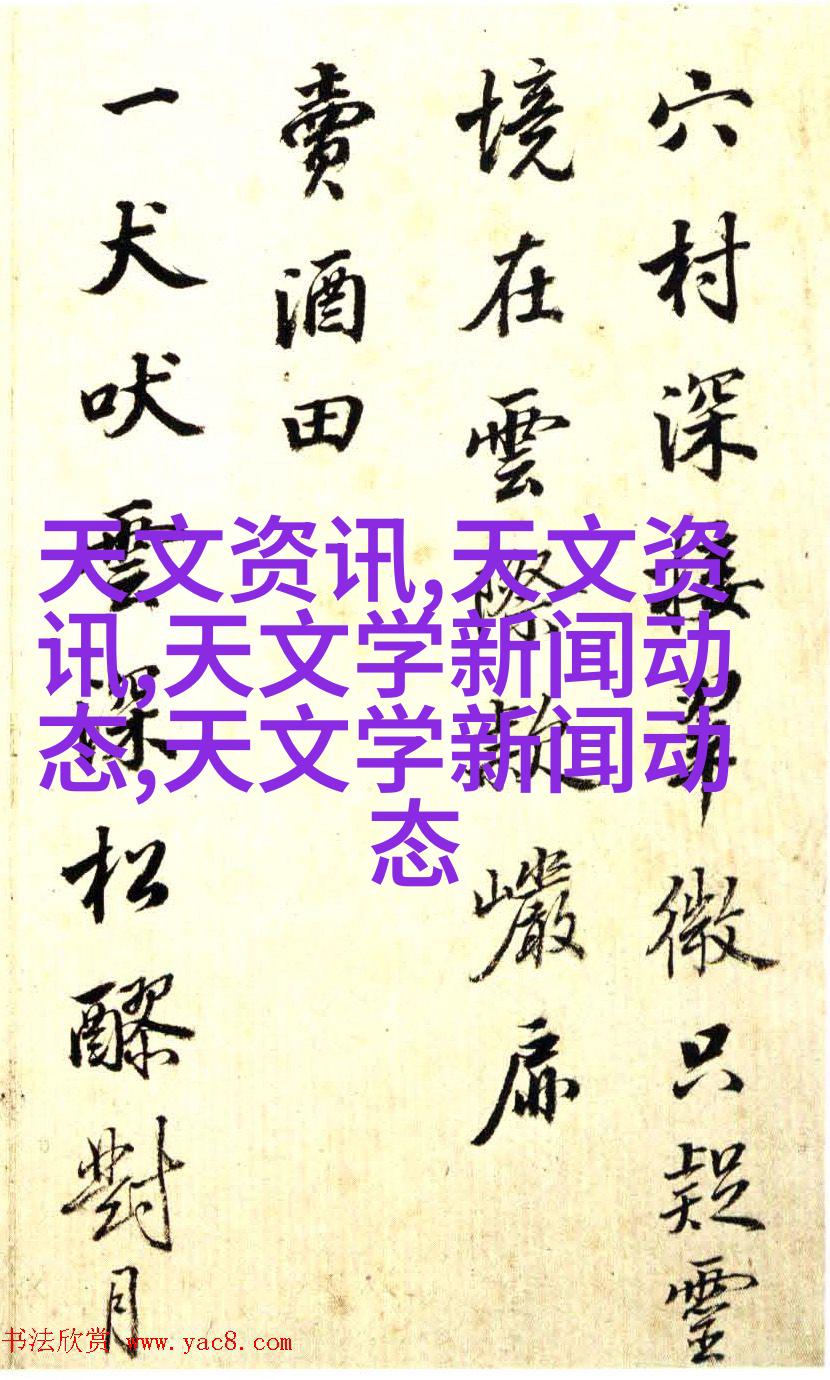 穴村深接翠微只疑靈
境在雲際款巖扉
賣酒田
一犬吠雲深松醪對月
天文资讯,天文资
讯,天文学新闻动
态,天文学新闻动
态
书法欣赏 www.yac8.com